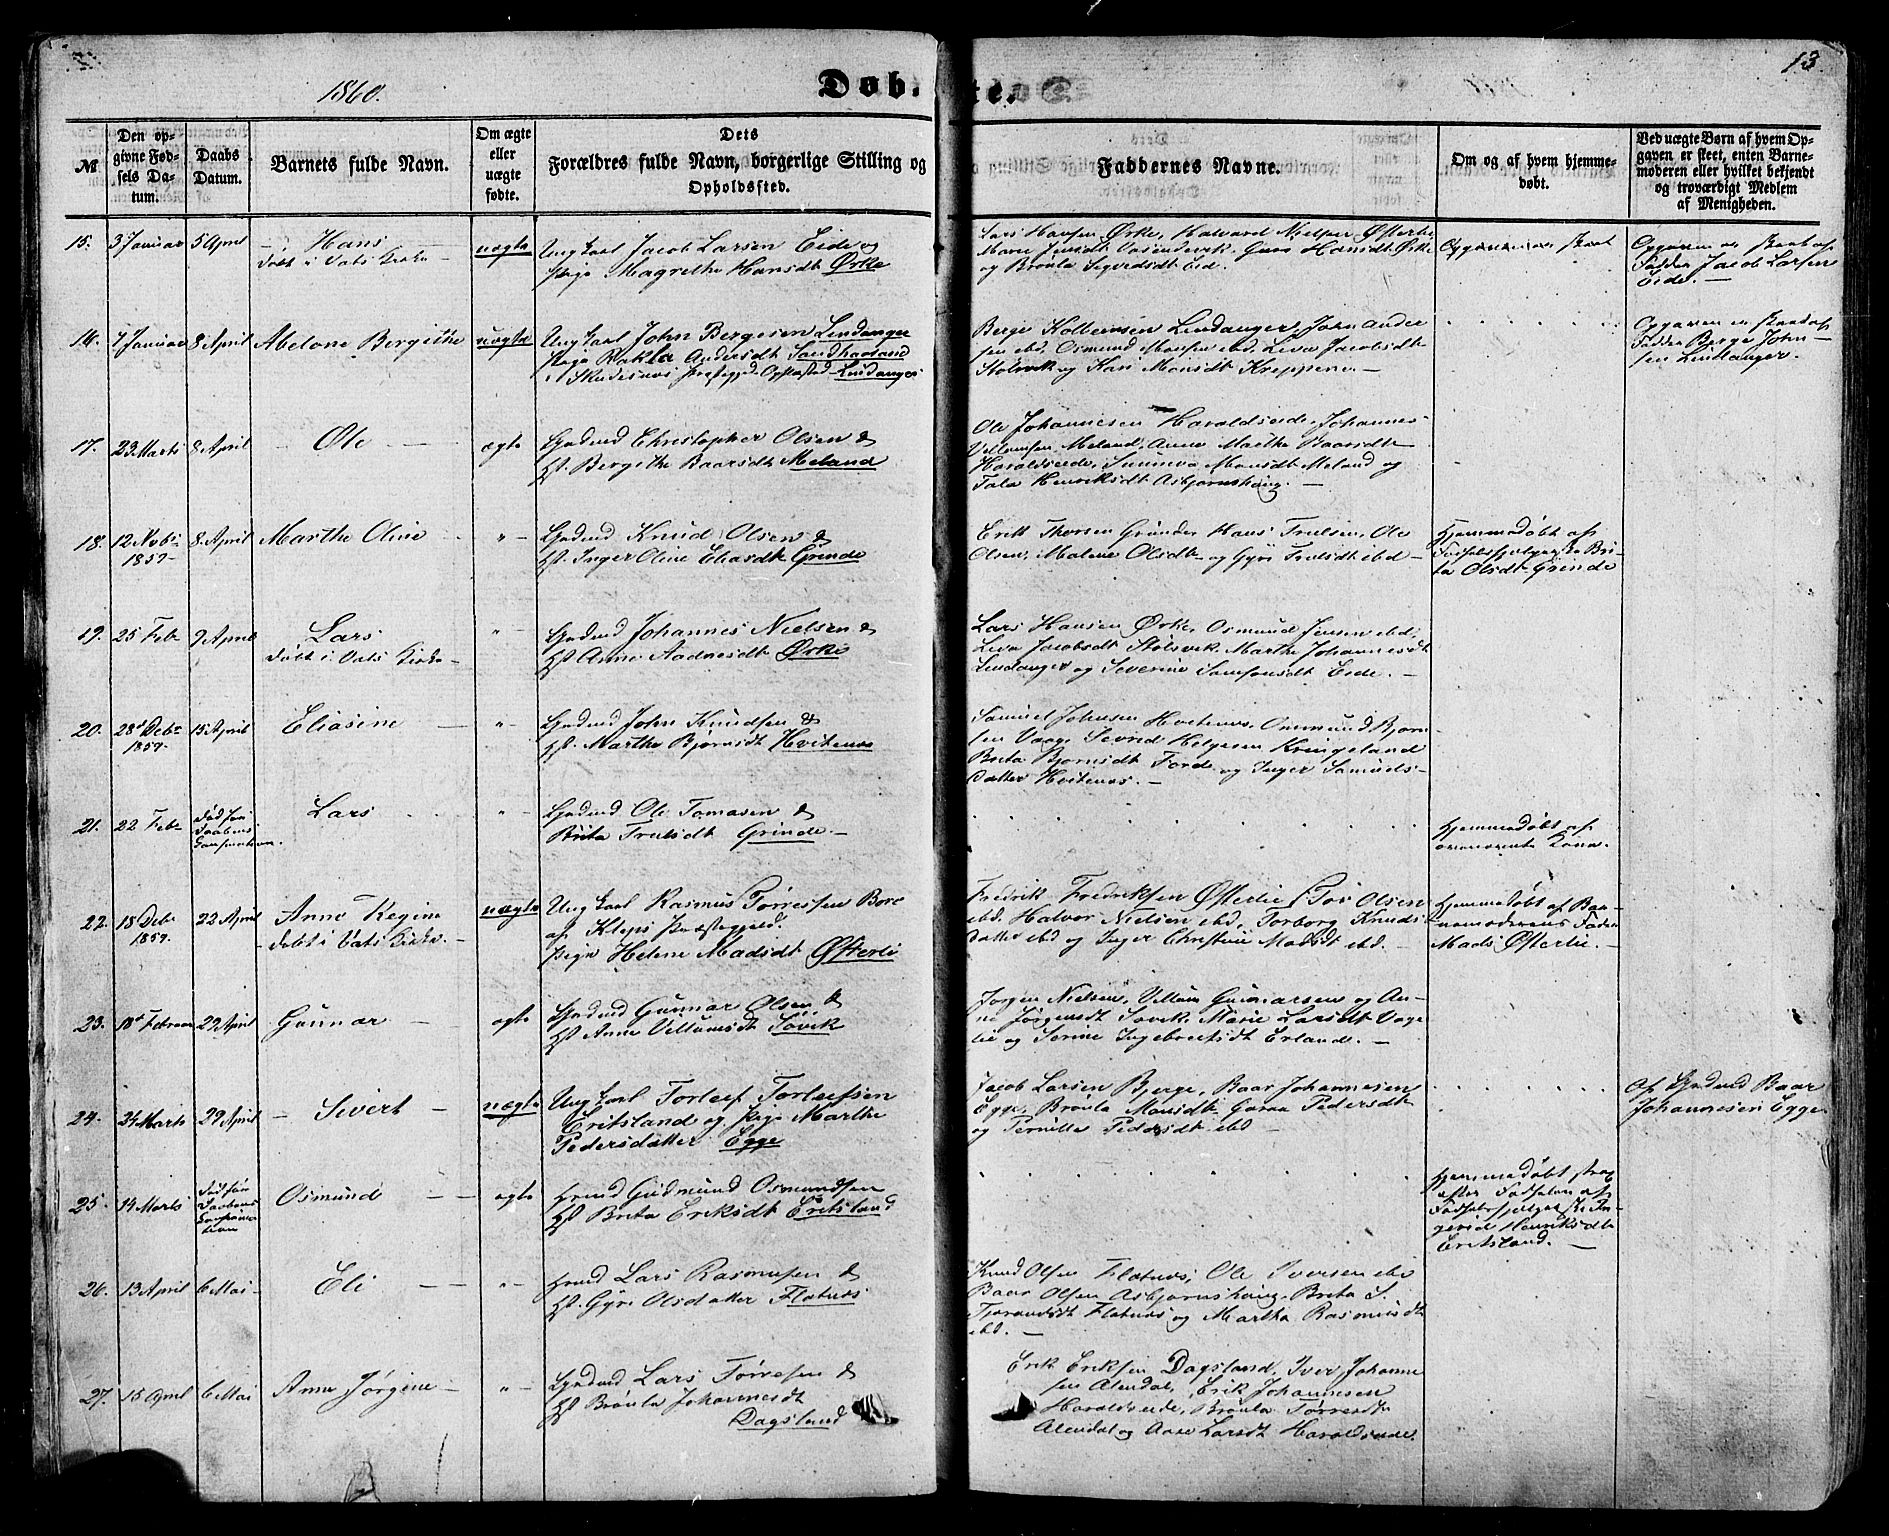 13
1860.
Døbte.
№
Den opgivne Fødsels Datum.
Daabs Datum.
Barnets fulde Navn.
Om ægte eller uægte fødte.
Dets Forældres fulde Navn, borgerlige Stilling og Opholdssted.
Faddernes Navne.
Om og af hvem hjemmedøbt.
Ved uægte Børn af hvem Opgaven er skeet, enten Barnemoderen eller hvilket bekjendt og troværdigt Medlem af Menigheden.
15. 3 Januar 5 April Hans
døbt i Vats Kirke
uægte
Ungkarl Jacob Larsen Eide og
Pige Magrethe Hansdt Ørke
Lars Hansen Ørke, Halvard Østerlie
og Brønla Sigvedsdt Eid.
Opgaven er skeet af
Fadder Jacob Larsen
Eide. —
16. 7 Januar 8 April Abelone Bergithe uægte
Ungkarl John Bergesen Lindanger
Pige Andersdt Sandhaaland
i Skudesnes Præstegjeld Lindanger
Berge Kolbeinsen Lindanger, John Ander
sen ibd. Osmund Monsen ibd. Liva Jacobsdt
Stolsvik og Kari Monsdt Kreppene —
Opgaven er skeet af
Fadder Berge John-
sen Lindanger.
17. 23 Marts 8 April — Ole — ægte
Gdmd Christopher Olsen &
Hst. Bergithe Baarsdt Meland
Ole Johannesen Haraldseide, Johannes
Villumsen Meland, Anne Marthe Baarsdt
Haraldseide, Sunniva Monsdt Meland og
Tala Henriksdt Asbjørnshoug. —
18. 12 Novbr 1859 8 April Marthe Oline "
Gdmd Knud Olsen &
Hst. Inger Oline Eliasdt Grinde
Erik Thorsen Grinde, Hans Trulsen, Ole
Olsen, Malene Olsdt og Gyri Trulsdt ibd —
Hjemmedøbt af
Fødselshjelperske Bri-
ta Olsdt Grinde
19. 25 Feb 9 April Lars
Døbt i Vats Kirke —
"
Gdmd Johannes Nielsen &
Hst. Anne Aadnesdt Ørke
Lars Hansen Ørke, Osmund Jensen ibd,
Liva Jacobsdt Stolsvik, Marthe Johannesdt
Lindanger og Severine Samsonsdt Eide. —
20. 28 Debr 1859. 15 April Eliasine "
Gdmd John Knudsen &
Hst. Marthe Bjørnsdt Hvitenes
Samuel Johnsen Hvitenes, Ommund Bjørn
sen Vaage, Sevrid Helgesen Kringeland
Brita Bjørnsdt Førde og Inger Samuels-
datter Hvitenes. —
21. 22 Feb
Død før
Daabens
Confirmation.
Lars "
Gdmd Ole Tomasen &
Brita Trulsdt Grinde. —
Hjemmedøbt af
Kone.
22. 18 Debr 1859. 22 April Anne Regine
døbt i Vats Kirke. —
uægte
Ungkarl Rasmus Tørresen Bore
af Kleps Præstegjeld.
Pige Helene Madsdt Østerli
Fredrik Fredriksen Østerlie, Tor Olsen
ibd. Halvor Nielsen ibd, Torborg Knuds
datter ibd og Inger Christine Madsdt ibd. —
Hjemmedøbt af Bar-
nemoderens Fader
Mads Østerlie. —
23. 18 Februar 29 April Gunnar — ægte
Gdmd Gunnar Olsen &
Hst Anne Villumsdt Søvik
Jørgen Nielsen, Villum Gunnarsen og An-
ne Jørgensdt Søvik, Marie Larsdt Vage
lie og Serine Ingebretsdt Erland. —
24. 24 Marts 29 April — Sivert — uægte
Ungkarl Torleef Torleefsen
Eritsland og Pige Marthe
Pedersdatter Egge
Jacob Larsen Bjerge, Baar Johannesen
Egge, Brønla Monsdt, Guroa Pedersdt
og Pernille Pedersdt ibd —
af Gdmd Baar
Johannesen Egge
25. 14 Marts
Død før
Daabens
Confirma-
tion
Osmund — ægte
Hmd Gudmund Osmundsen
Hst Brita Eriksdt Eritsland
Hjemmedøbt strax
efter Fødselen af
Fødselshjelperske In-
geri Henriksdt
Eritsland. —
26. 13 April 6 Mai Eli — "
Hmd Lars Rasmusen &
Hst. Gyri Olsdatter Flotnes
Knud Olsen Flotnes, Ole Iversen ibd
Baar Olsen Asbjørnshoug, Brita S.
Flotnes og Marthe Rasmusdt
ibd. —
27. 15 April 6 Mai Anne Jørgine — "
Gdmd Lars Tørresen &
Hst Brønla Johannesdt
Dagsland
Erik Eriksen Dagsland, Iver Johanne
sen Alendal, Erik Johannesen
Haraldseide, Brønla Tørresdt
Alendal og Aase Larsdt Haraldseide.